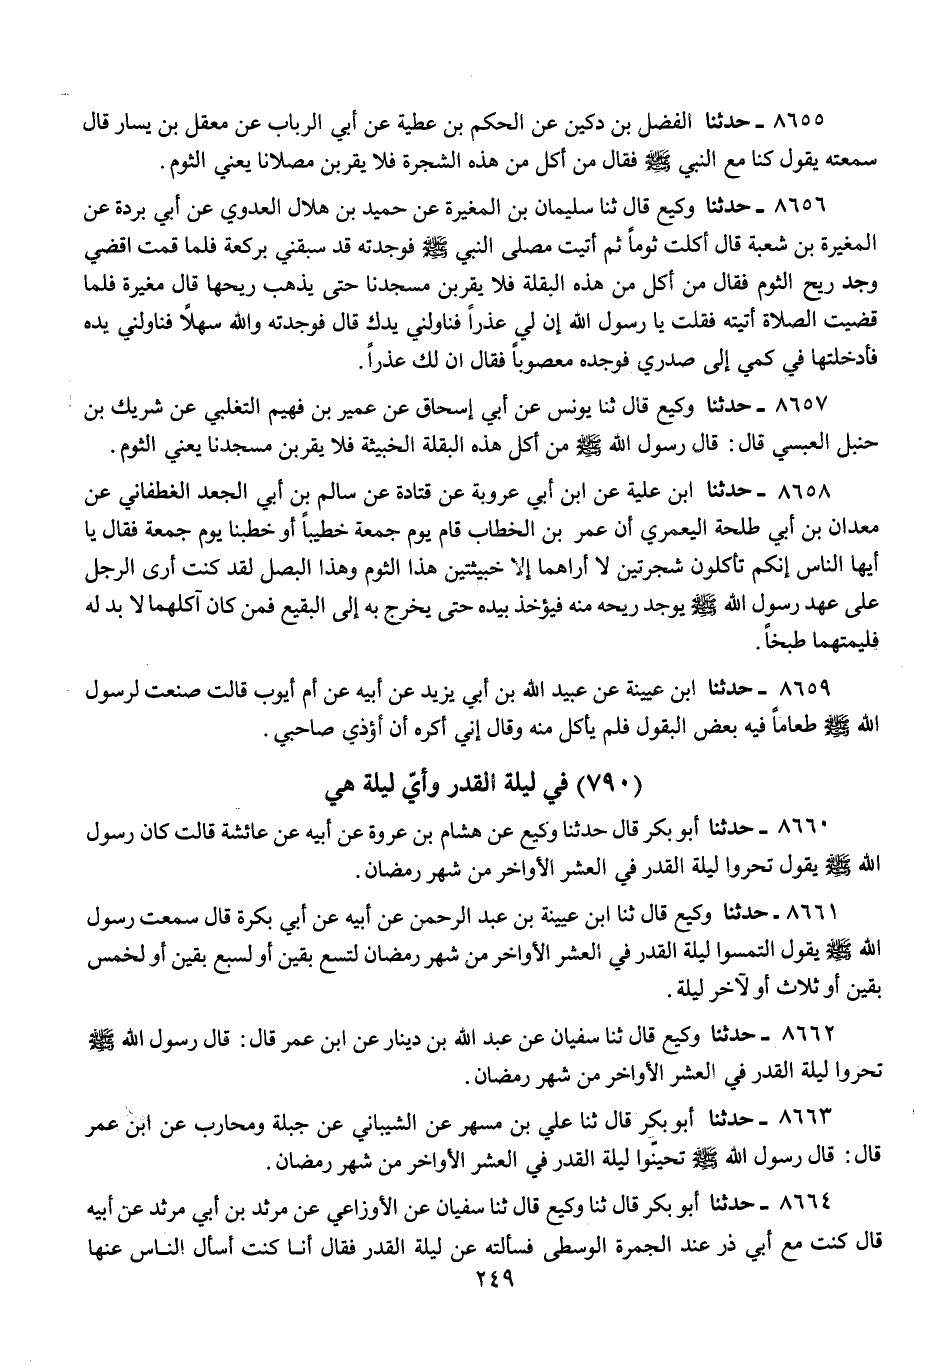 ٨٦٥٥ ـ حدثنا الفضل بن دكين عن الحكم بن عطية عن أبي الرباب عن معقل بن يسار قال
سمعته يقول كنا مع النبي ﷺ فقال من أكل من هذه الشجرة فلا يقربن مصلانا يعني الثوم .
٨٦٥٦ ـ حدثنا وكيع قال ثنا سليمان بن المغيرة عن حميد بن هلال العدوي عن أبي بردة عن
المغيرة بن شعبة قال أكلت ثوماً ثم أتيت مصلى النبي ﷺ فوجدته قد سبقني بركعة فلما قمت اقضي
وجد ريح الثوم فقال من أكل من هذه البقلة فلا يقربن مسجدنا حتى يذهب ريحها قال مغيرة فلما
قضيت الصلاة أتيته فقلت يا رسول الله إن لي عذراً فناولني يدك قال فوجدته والله سهلاً فناولني يده
فأدخلتها في كمي إلى صدري فوجده معصوباً فقال ان لك عذراً .
٨٦٥٧ ـ حدثنا وكيع قال ثنا يونس عن أبي إسحاق عن عمير بن فهيم التغلبي عن شريك بن
حنبل العبسي قال : قال رسول الله ﷺ من أكل هذه البقلة الخبيثة فلا يقربن مسجدنا يعني الثوم .
٨٦٥٨ ـ حدثنا ابن علية عن ابن أبي عروبة عن قتادة عن سالم بن أبي الجعد الغطفاني عن
معدان بن أبي طلحة اليعمري أن عمر بن الخطاب قام يوم جمعة خطيباً أو خطبنا يوم جمعة فقال يا
أيها الناس إنكم تأكلون شجرتين لا أراهما إلا خبيثتين هذا الثوم وهذا البصل لقد كنت أرى الرجل
على عهد رسول الله ﷺ يوجد ريحه منه فيؤخذ بيده حتى يخرج به إلى البقيع فمن كان آكلهما لا بد له
فليمتهما طبخاً .
٨٦٥٩ ـ حدثنا ابن عيينة عن عبيد الله بن أبي يزيد عن أبيه عن أم أيوب قالت صنعت لرسول
الله ﷺ طعاماً فيه بعض البقول فلم يأكل منه وقال إني أكره أن أؤذي صاحبي .
(٧٩٠) في ليلة القدر وأيّ ليلة هي
٨٦٦٠ ـ حدثنا أبو بكر قال حدثنا وكيع عن هشام بن عروة عن أبيه عن عائشة قالت كان رسول
الله ﷺ يقول تحروا ليلة القدر في العشر الأواخر من شهر رمضان .
٨٦٦١ ـ حدثنا وكيع قال ثنا ابن عيينة بن عبد الرحمن عن أبيه عن أبي بكرة قال سمعت رسول
الله ﷺ يقول التمسوا ليلة القدر في العشر الأواخر من شهر رمضان لتسع بقين أو لسبع بقين أو لخمس
بقين أو ثلاث أو لآخر ليلة .
٨٦٦٢ ـ حدثنا وكيع قال ثنا سفيان عن عبد الله بن دينار عن ابن عمر قال : قال رسول الله ﷺ
تحروا ليلة القدر في العشر الأواخر من شهر رمضان .
٨٦٦٣ ـ حدثنا أبو بكر قال ثنا علي بن مسهر عن الشيباني عن جبلة ومحارب عن ابن عمر
قال : قال رسول الله ﷺ تحينّوا ليلة القدر في العشر الأواخر من شهر رمضان .
٨٦٦٤ ـ حدثنا أبو بكر قال ثنا وكيع قال ثنا سفيان عن الأوزاعي عن مرثد بن أبي مرثد عن أبيه
قال كنت مع أبي ذر عند الجمرة الوسطى فسألته عن ليلة القدر فقال أنا كنت أسأل الناس عنها
٢٤٩